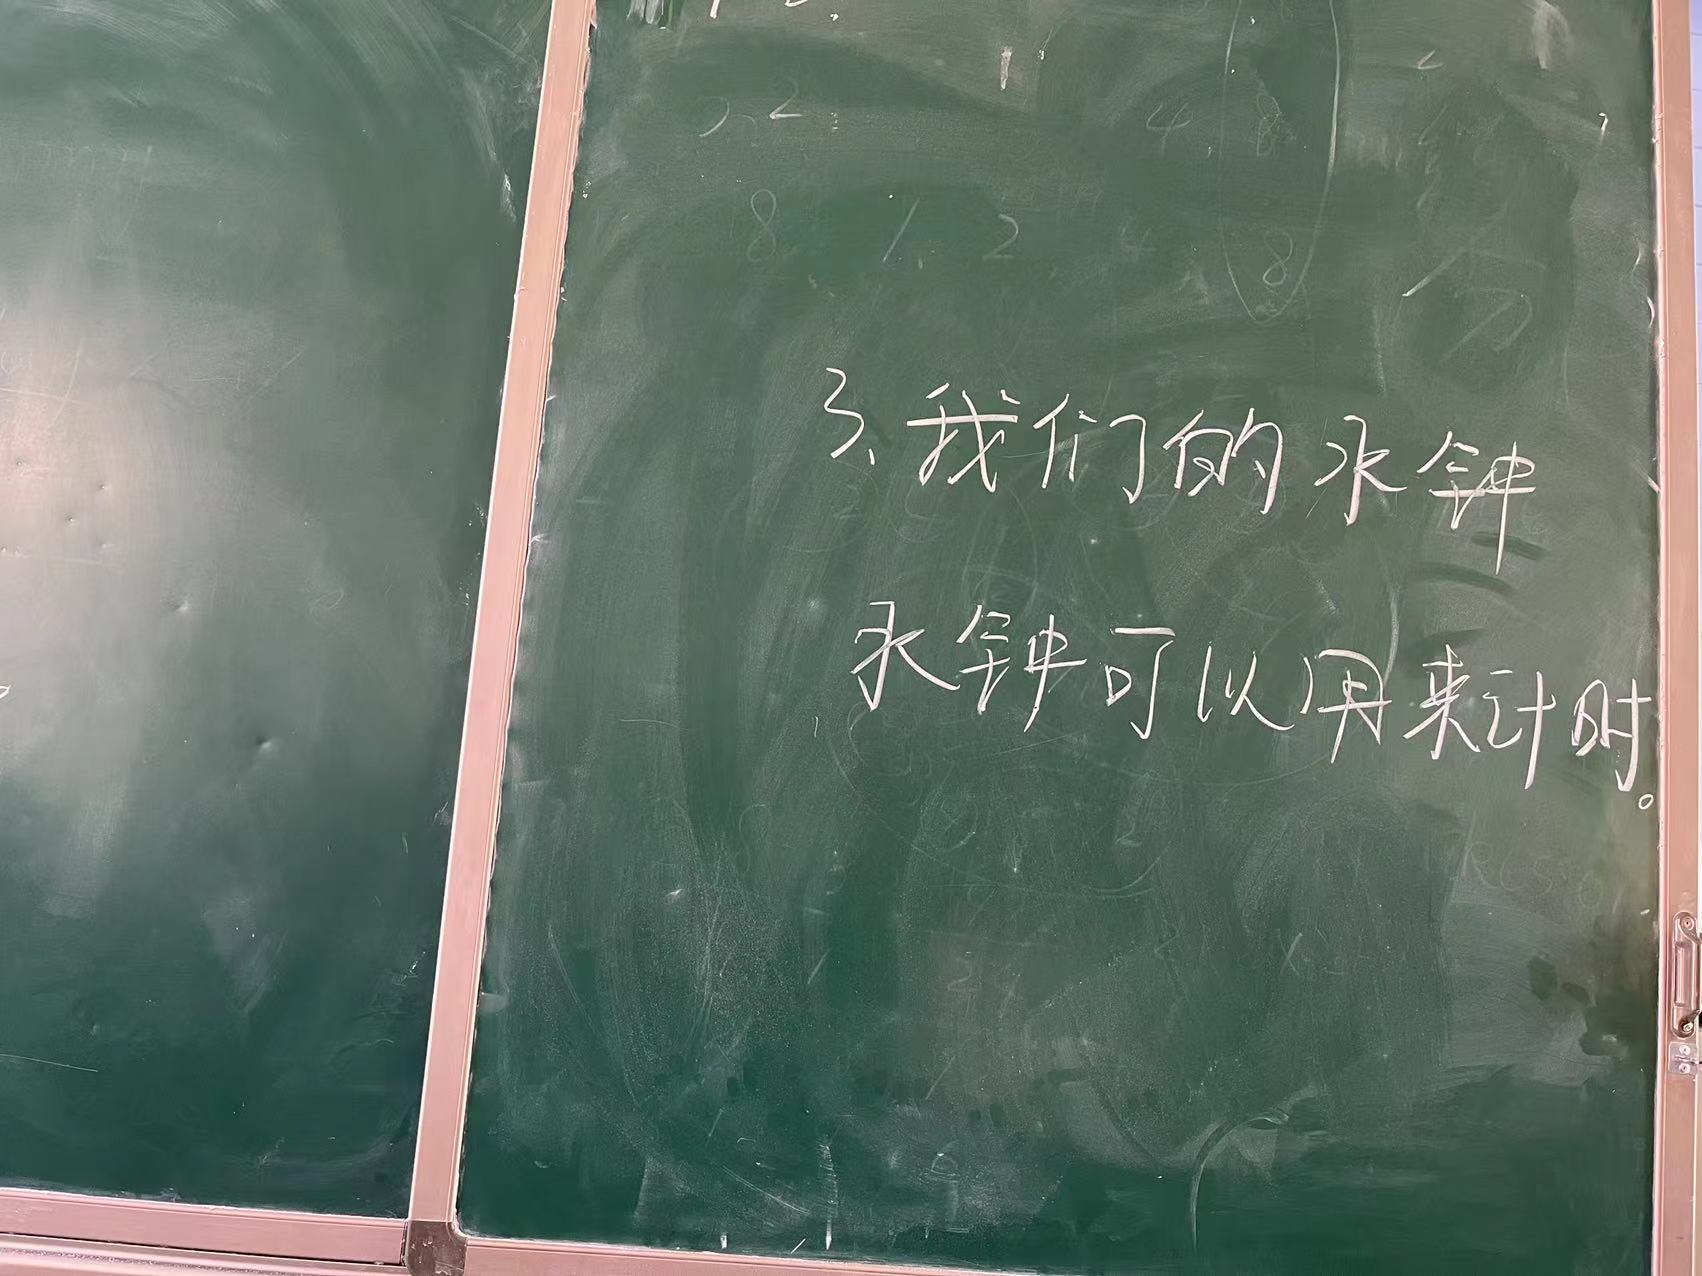 3、我们的水钟
水钟可以用来计时。